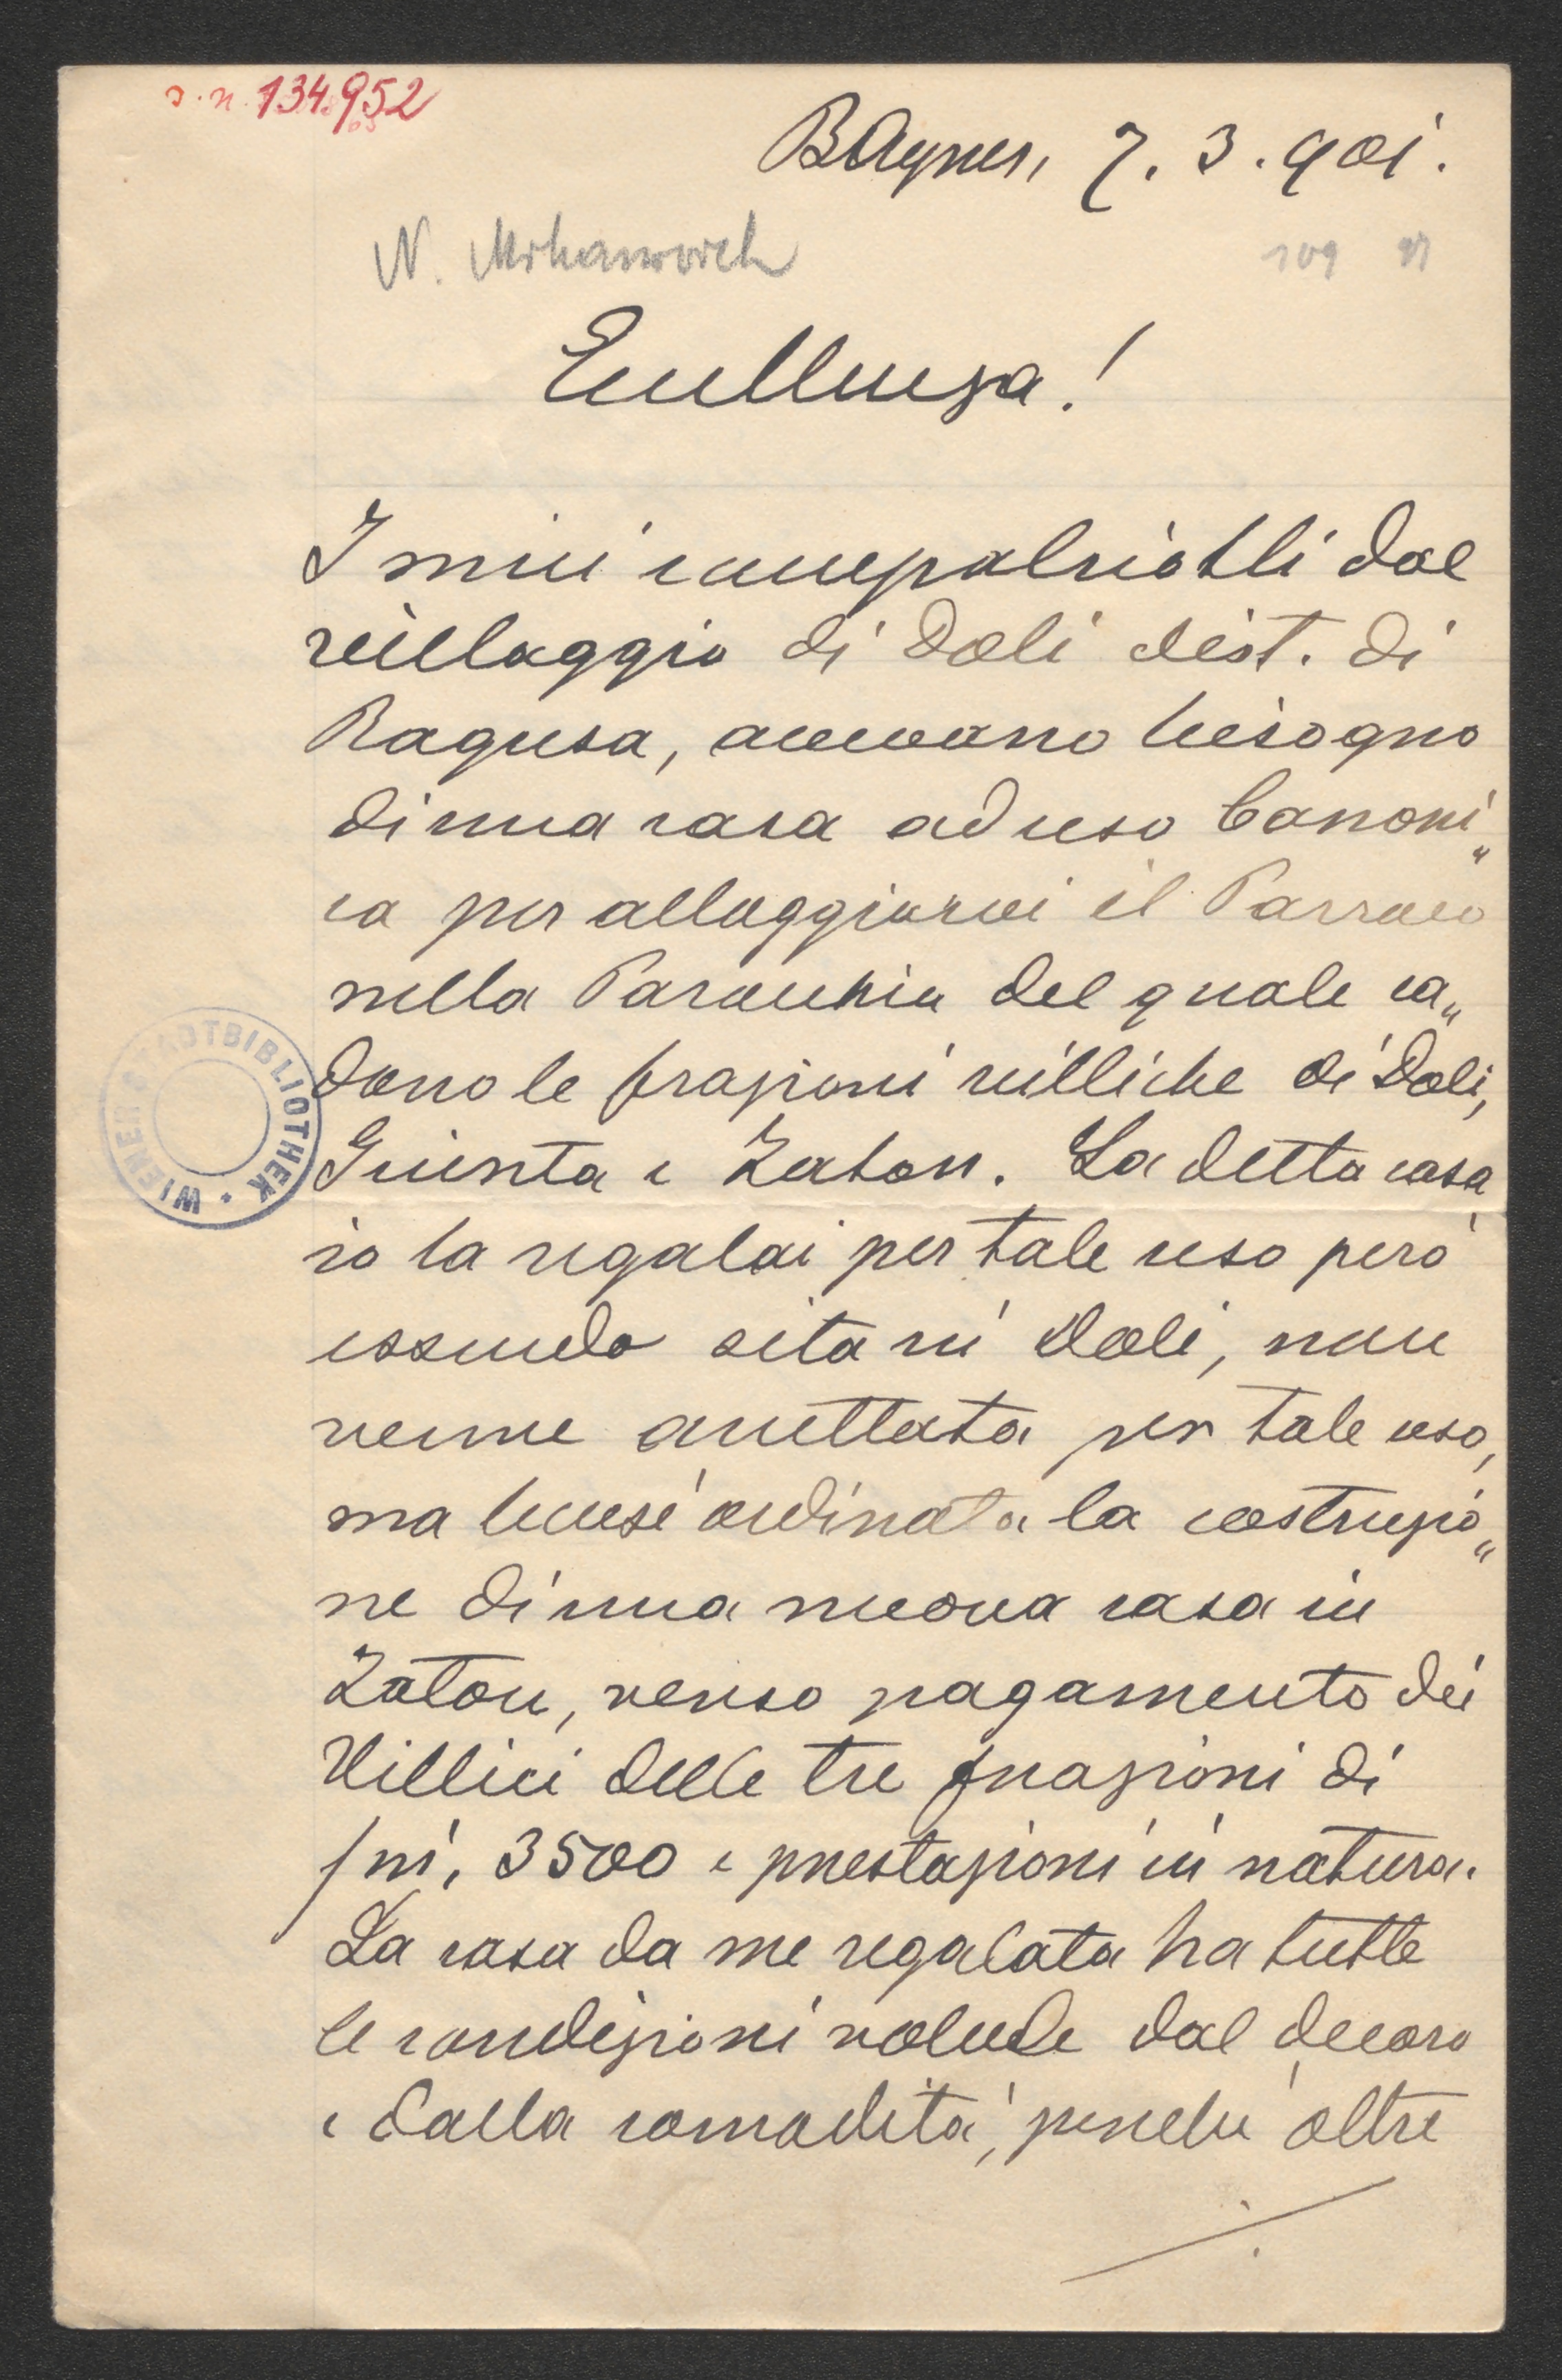 I.N. 134.952
BAyres, 7. 3. 901.
N. Mihanovich
109 91
Eccellenza!
I miei compatriotti dal
villaggio di Doli dist. di
Ragusa, avevano bisogno
di una casa ad uso Canoni„
ca per alloggiarvi il Parroco
nella Parocchia del quale ca„
dono le frazioni villiche di Doli,
e Zaton. La detta casa
io la regalai per tale uso però
essendo sita in Doli, non
venne accettata per tale uso,
ma bensì ordinata la costruzio„
ne di una nuova casa in
Zaton, verso pagamento dei
Villici delle tre frazioni di
fni, 3500 e prestazioni in natura.
La casa da me regalata ha tutte
le condizioni volute dal decoro
e dalla comodità, perchè oltre
./.
WIENER STADTBIBLIOTHEK